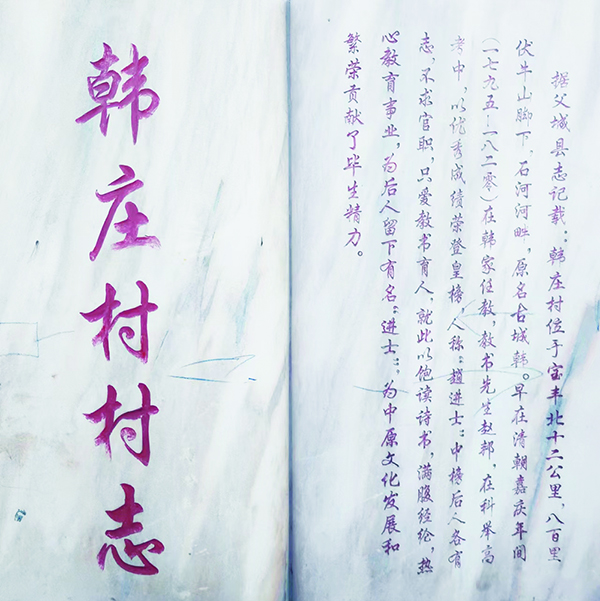 韩庄村村志
据父城县志记载：韩庄村位于宝丰北十二公里，八百里
伏牛山脚下，石河河畔，原名古城韩。早在清朝嘉庆年间
（一七九五—一八二零）在韩家任教，教书先生赵邦，在科举高
考中，以优秀成绩荣登皇榜，人称：赵进士：中榜后人各有
志，不求官职，只爱教书育人，就此以饱读诗书，满腹经纶，热
心教育事业，为后人留下有名：进士：为中原文化发展和
繁荣贡献了毕生精力。